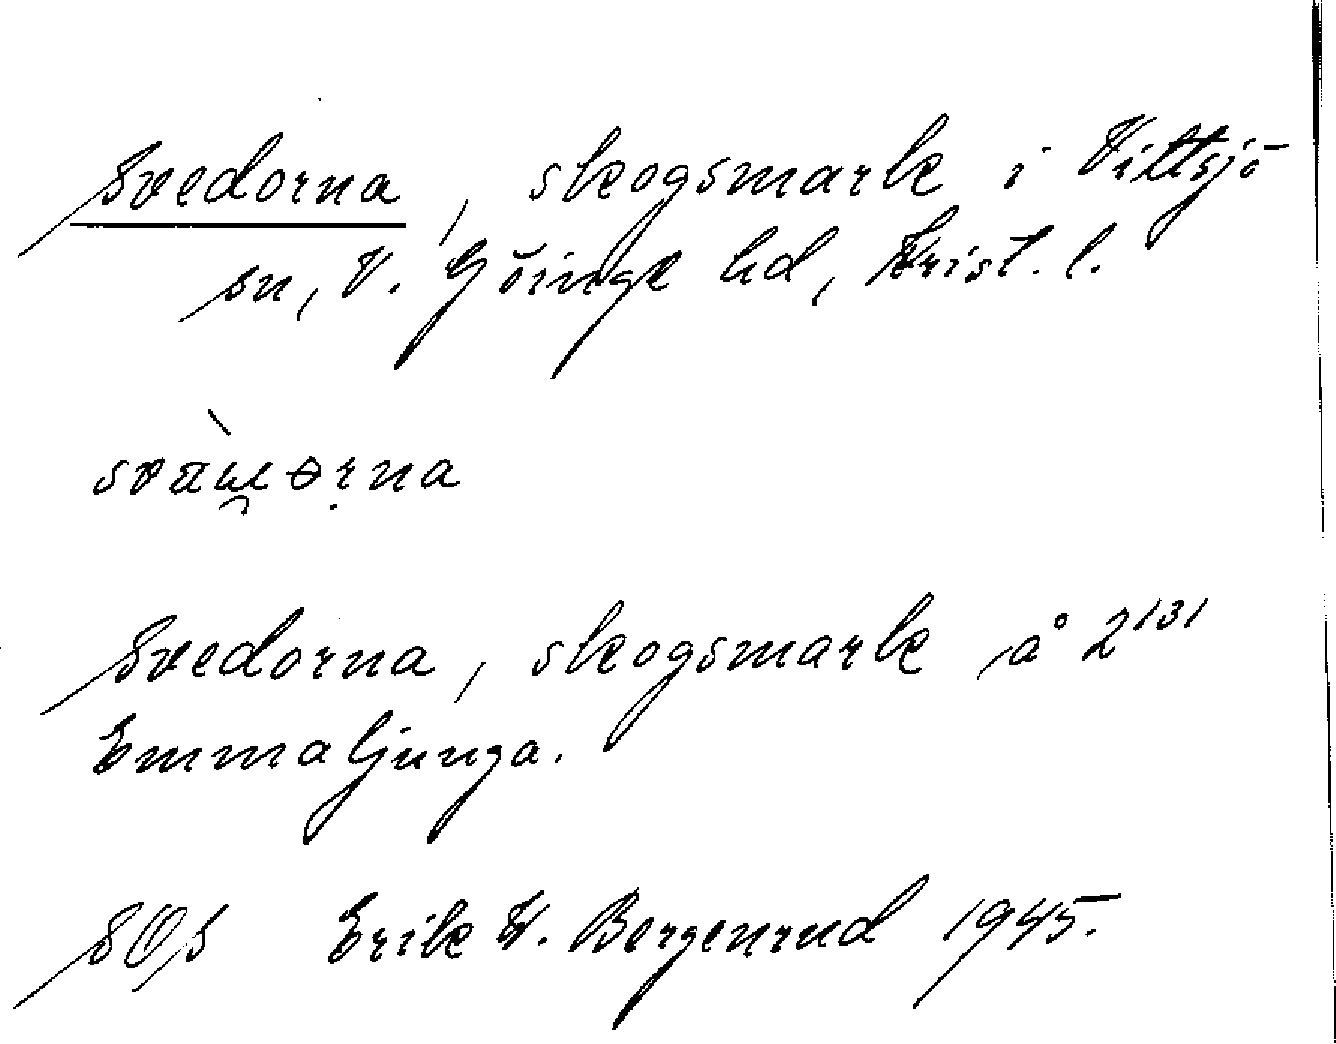 Svedorna, skogsmark i Vittsjö
sn, V. Göinge hd, Krist. l.
Svedorna, skogsmark å 2¹³¹
Emmaljunga.
SOS Erik H. Bergenrud 1945.